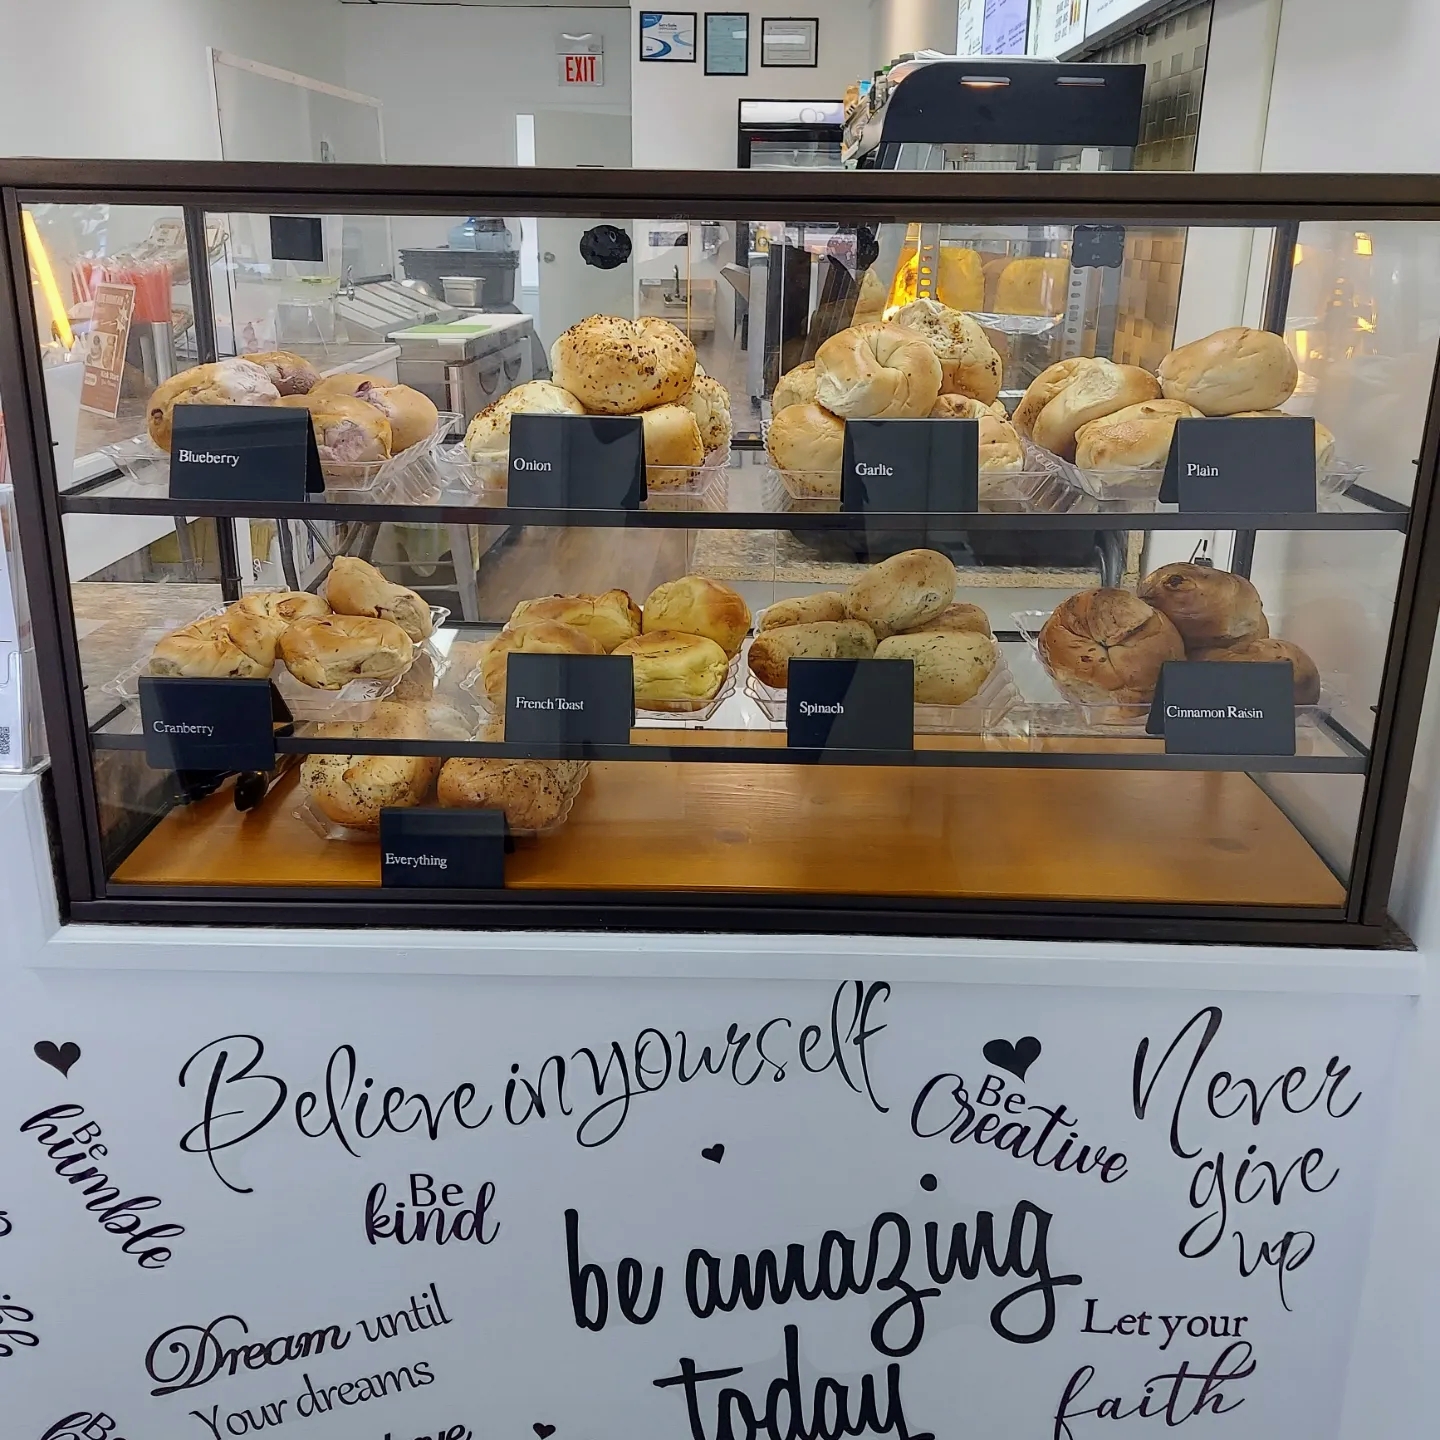 EXIT
Blueberry
Onion
Garlic
Plain
Cranberry
French Toast
Spinach
Cinnamon Raisin
Everything
Believe in yourself
Be
Creative
Never
give
up
Be
humble
Be
kind
be amazing
today
Dream until
Your dreams
Let your
faith
Be